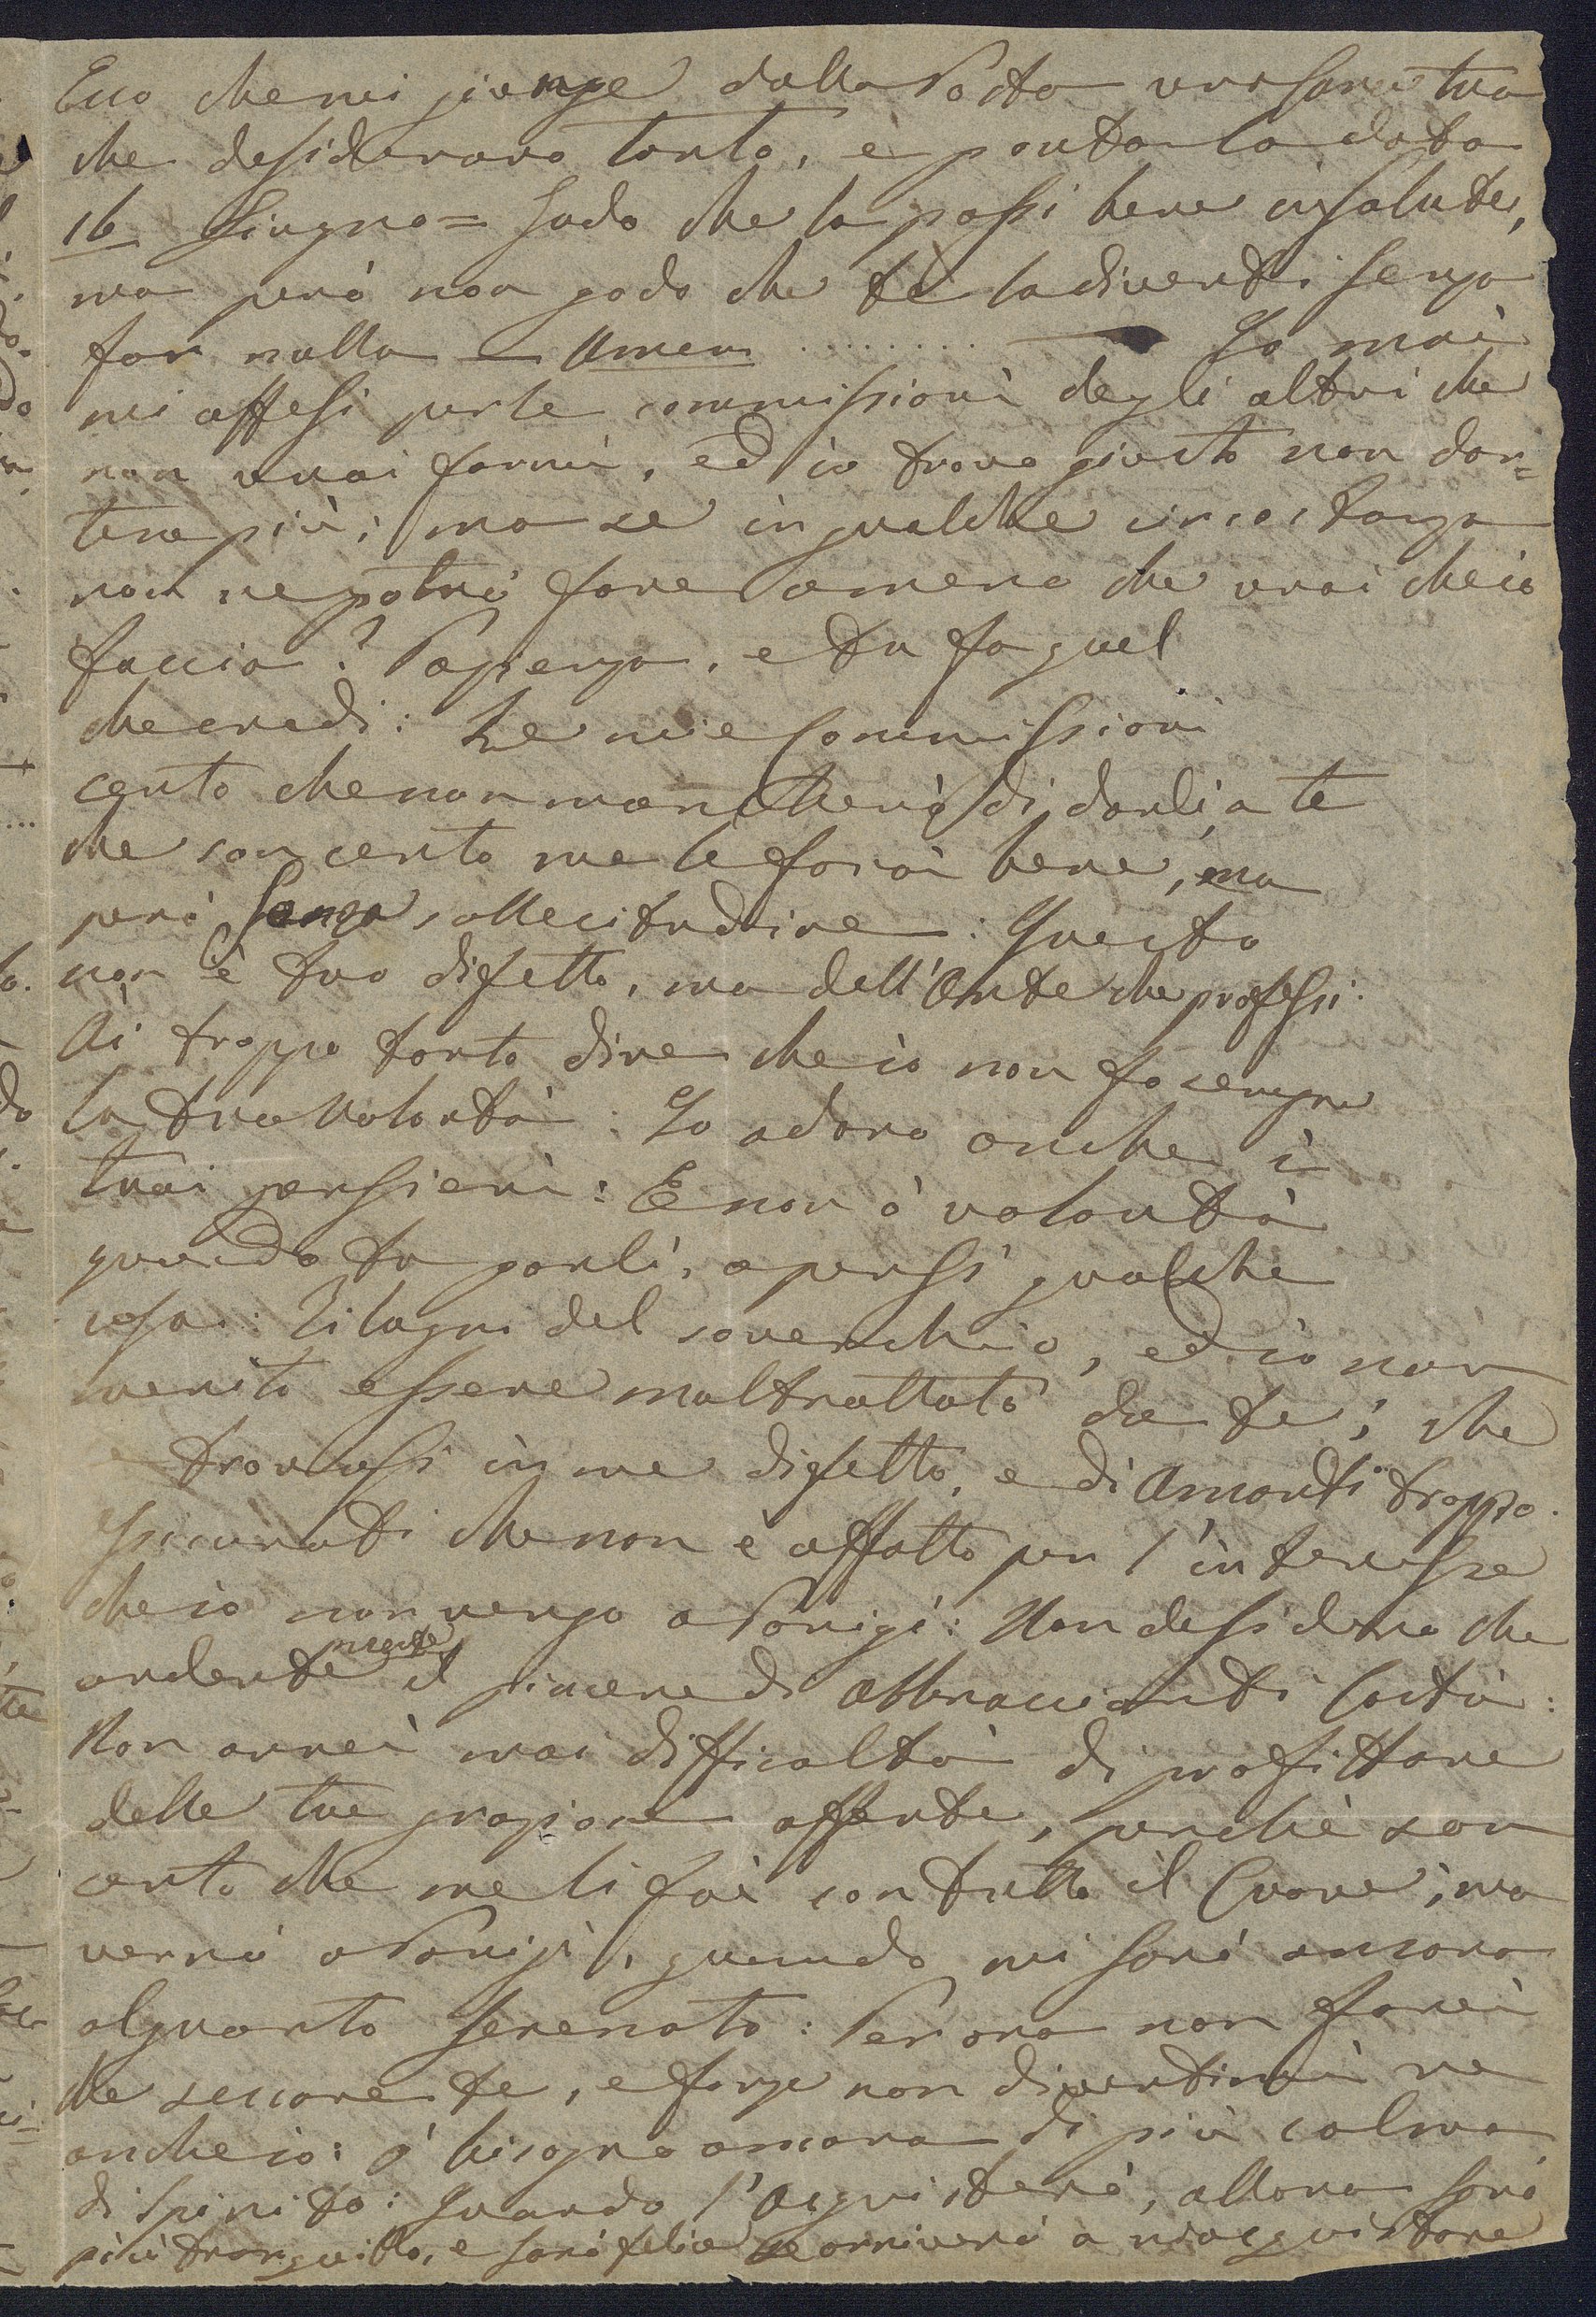 Ecco che mi giunge dalla Posta una tua
che desideravo tanto, e porta la data
16 Giugno = Godo che la passi bene in salute,
ma però non godo che te la diverti senza
far nulla — Amen ......... — Io mai
mi offesi per le commissioni degli altri che
non vuoi farmi, ed io trovo giusto non dar=
tene più; ma se in qualche circostanza
non ne potrò fare ameno che vuoi che io
faccia? Pazienza, e tu fa quel
che credi: Le mie Commissioni
certo che non mancherò di darli a te
che son certo me le farai bene, ma
però senza sollecitudine: Questo
non è tuo difetto, ma dell'Arte che professi.
Ai troppo torto dire che io non fo sempre
la tua volontà: Io adoro anche i
tuoi pensieri: E non ò volontà
quando tu parli, o pensi qualche
cosa: Ti lagni del soverchio, ed io non
merito essere maltrattato da te; che
trovassi in me difetto, e di Amarti troppo.
Assicurati che non è affatto per l'interesse
che io non vengo a Parigi: Non desidero che
ardentemente il piacere di abbracciarti Costà:
Non avrei mai difficoltà di profittare
delle tue graziose offerte, perchè son
certo che me li fai con tutto il Cuore; ma
verrò a Parigi, quando mi sarò ancora
alquanto serenato: Per ora non farei
che seccare te, e forse non divertirmi ne
anche io: ò bisogno ancora di più calma
di spirito: Quando l'acquisterò, allora sarò
più tranquillo, e sarò felice se arriverò a riacquistare